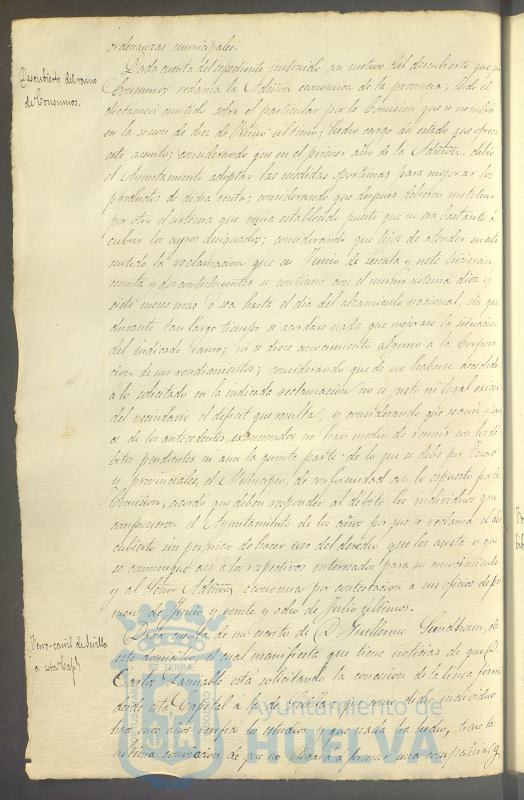 ordenanzas municipales.
Descubierto del ramo
de Consumos.
Dada cuenta del espediente instruido con motivo del descubierto que por
Consumos reclama la Admon economica de la provincia; leido el
dictamen emitido sobre el particular por la Comision que se nombró
en la sesion de diez de Junio ultimo; hecho cargo del estado que ofrece
este asunto; considerando que en el primer año de la Admon. debió
el Ayuntamiento adoptar las medidas oportunas para mejorar los
productos de dicha renta; considerando que despues debieron sustituir
por otro el sistema que venia establecido puesto que no era bastante á
cubrir los cupos designados; considerando que lejos de atender en este
sentido la reclamacion que en Junio de sesenta y siete hicieron
treinta y dos contribuyentes se continuó con el mismo sistema diez y
siete meses mas ó sea hasta el dia del alzamiento nacional, sin que
durante tan largo tiempo se acordase nada que mejorase la situacion
del indicado ramo; ni se diese conocimiento alguno á la Corpora
cion de sus rendimientos; considerando que de no haberse accedido
á lo solicitado en la indicada reclamacion no es justo ni legal exigir
del vecindario el deficit que resulta, y considerando que segun
de los antecedentes examinados no hay medio de reunir con los dé
bitos pendientes ni aun la quinta parte de lo que se debe por Tesoro
y provinciales el Municipio, de conformidad con lo espuesto por la
Comision, acordó que deben responder al debito los individuos que
compusieron el Ayuntamiento de los años por que se reclama el des
cubierto sin perjuicio de hacer uso del derecho que les asista y que
se comunique asi á los respectivos interesados para su conocimiento
y al Señor Admor economico por contestacion á sus oficios de pri
mero de Junio y veinte y ocho de Julio ultimos.
Ferro-carril de Sevilla
a esta Capl
Dada cuenta de un escrito de D. Guillermo Sundheim, de
este domicilio, el cual manifiesta que tiene noticias de que D.
Carlos Lamiable está solicitando la concesion de la linea ferrea
desde esta Capital á la de Sevilla; que como dicho individuo
hace once años verificó los estudios y que nada ha hecho, tiene la
intima conviccion de que no llegará á formar una compañia, y
Ayuntamiento de
HUELVA